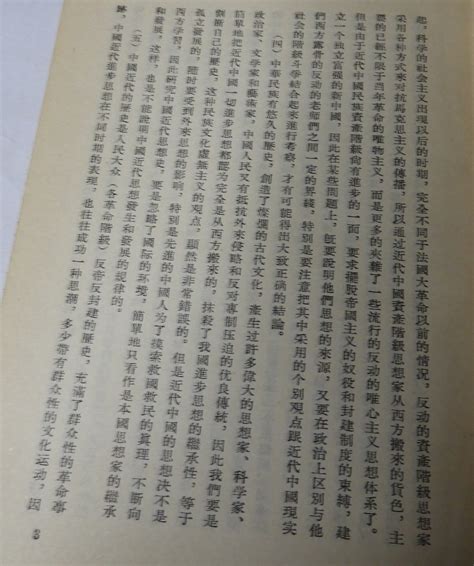 起，科学的社会主义出現以后的时期，完全不同于法國大革命以前的情况。反动的資產階級思想家
采用各种方式來对抗馬克思主义的傳播，所以通过近代中國資產階級思想家从西方搬來的貨色，主
要的已經不限于当年革命的唯物主义，而是更多的夾雜了一些流行的反动的唯心主义思想体系了。
但是由于近代中國民族資產階級尙有進步的一面，要求擺脫帝國主义的奴役和封建制度的束縛，建
立一个独立富强的新中國，因此在某些問題上，旣要說明他們思想的來源，又要在政治上区别与他
們西方露骨的反动的老师們之間一定的界綫，特别是要注意把其中采用的个别观点跟近代中國現实
社会的階級斗爭結合起來進行考察，才有可能得出大致正确的結論。
（四）中華民族有悠久的歷史，創造了燦爛的古代文化，產生过許多偉大的思想家、科学家、
政治家、文学家和藝術家，中國人民又有抵抗外來侵略和反对專制压迫的优良傳統，因此我們要是
簡單地把近代中國一切進步思想都認为完全是从西方搬來的，抹殺了我國進步思想的繼承性，等于
割断自己的歷史，这种民族文化虛無主义的观点，顯然是非常錯誤的。但是近代中國的思想决不是
孤立發展的，随时要受到外來思想的影响，特别是先進的中國人，为了摸索救國救民的眞理，不断向
西方学習，因此研究中國近代思想史，要是忽略了國际的环境，簡單地只看作是本國思想家的繼承
發展，这样，也是不能說明中國近代思想發生和發展的規律的。
（五）中國近代的歷史是人民大众（各革命階級）反帝反封建的歷史，充滿了群众性的革命事
跡，中國近代進步思想在不同时期的表現，也往往成功一种思潮，多少帶有群众性的文化运动，因
3